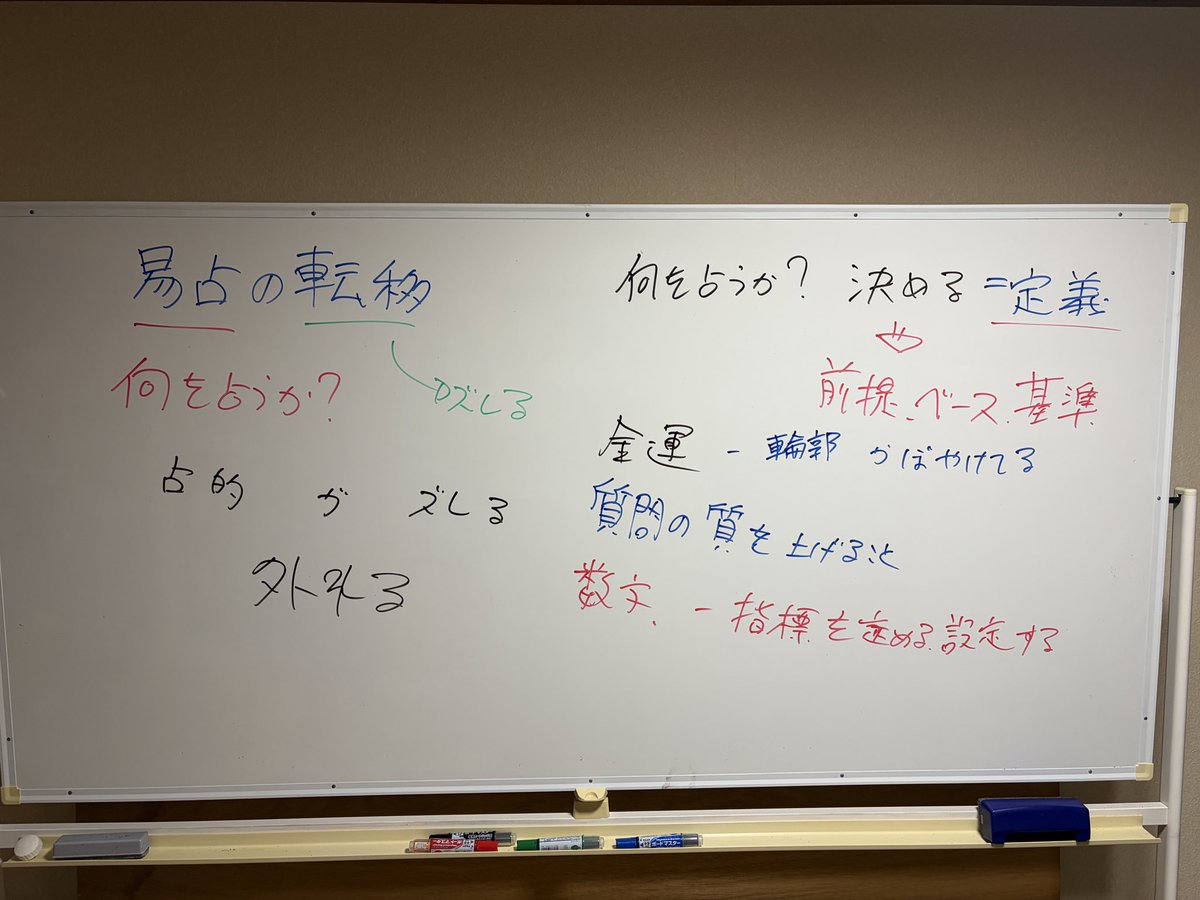 易占の転移
何を占うか?
ズレる
占的 が ズレる
外れる
何を占うか? 決める=定義
前提、ベース、基準
金運 - 輪郭がぼやけてる
質問の質を上げること
数字、- 指標を定める、設定する
ボードマスター